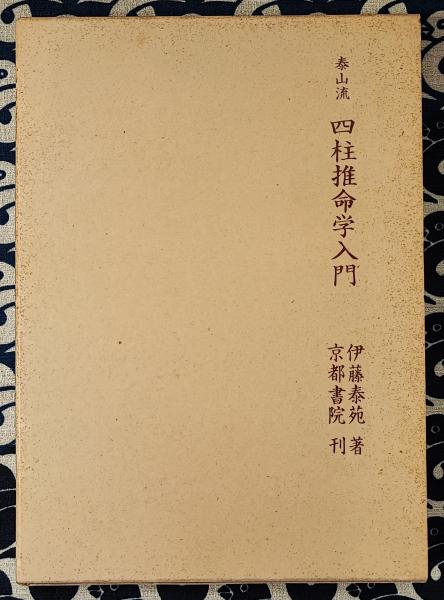 泰山流 四柱推命学入門
伊藤泰苑 著
京都書院 刊